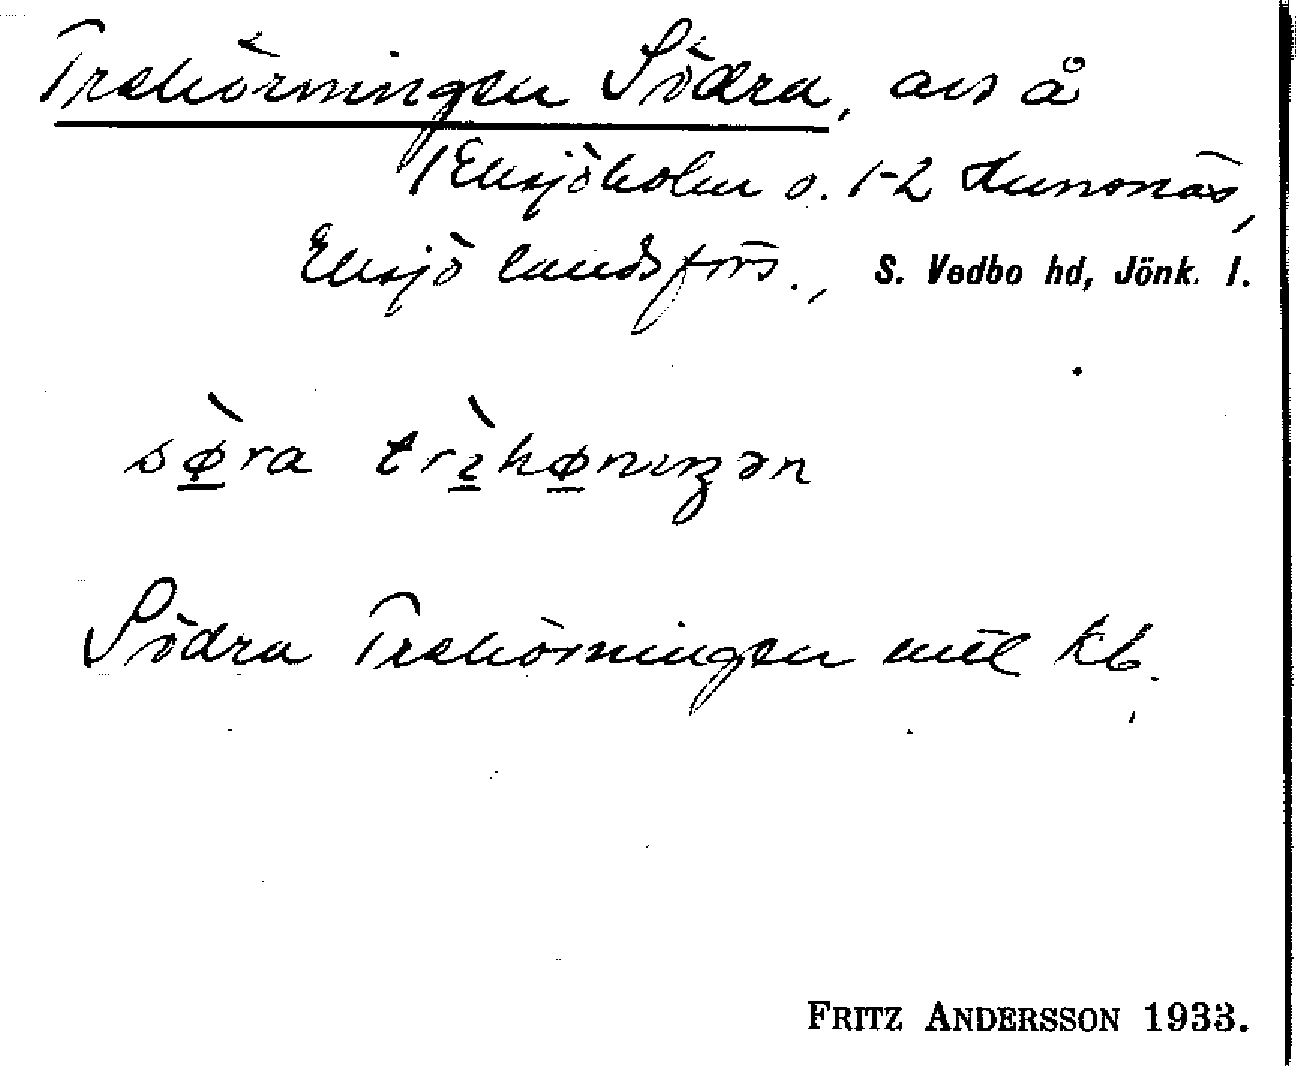 Trehörningen Södra, avs å
1 Eksjöholm o. 1-2 Hunsnäs,
Eksjö landsförs., S. Vedbo hd, Jönk. l.
sø̀ra trìhønıŋən
Södra Trehörningen
kb.
FRITZ ANDERSSON 1933.